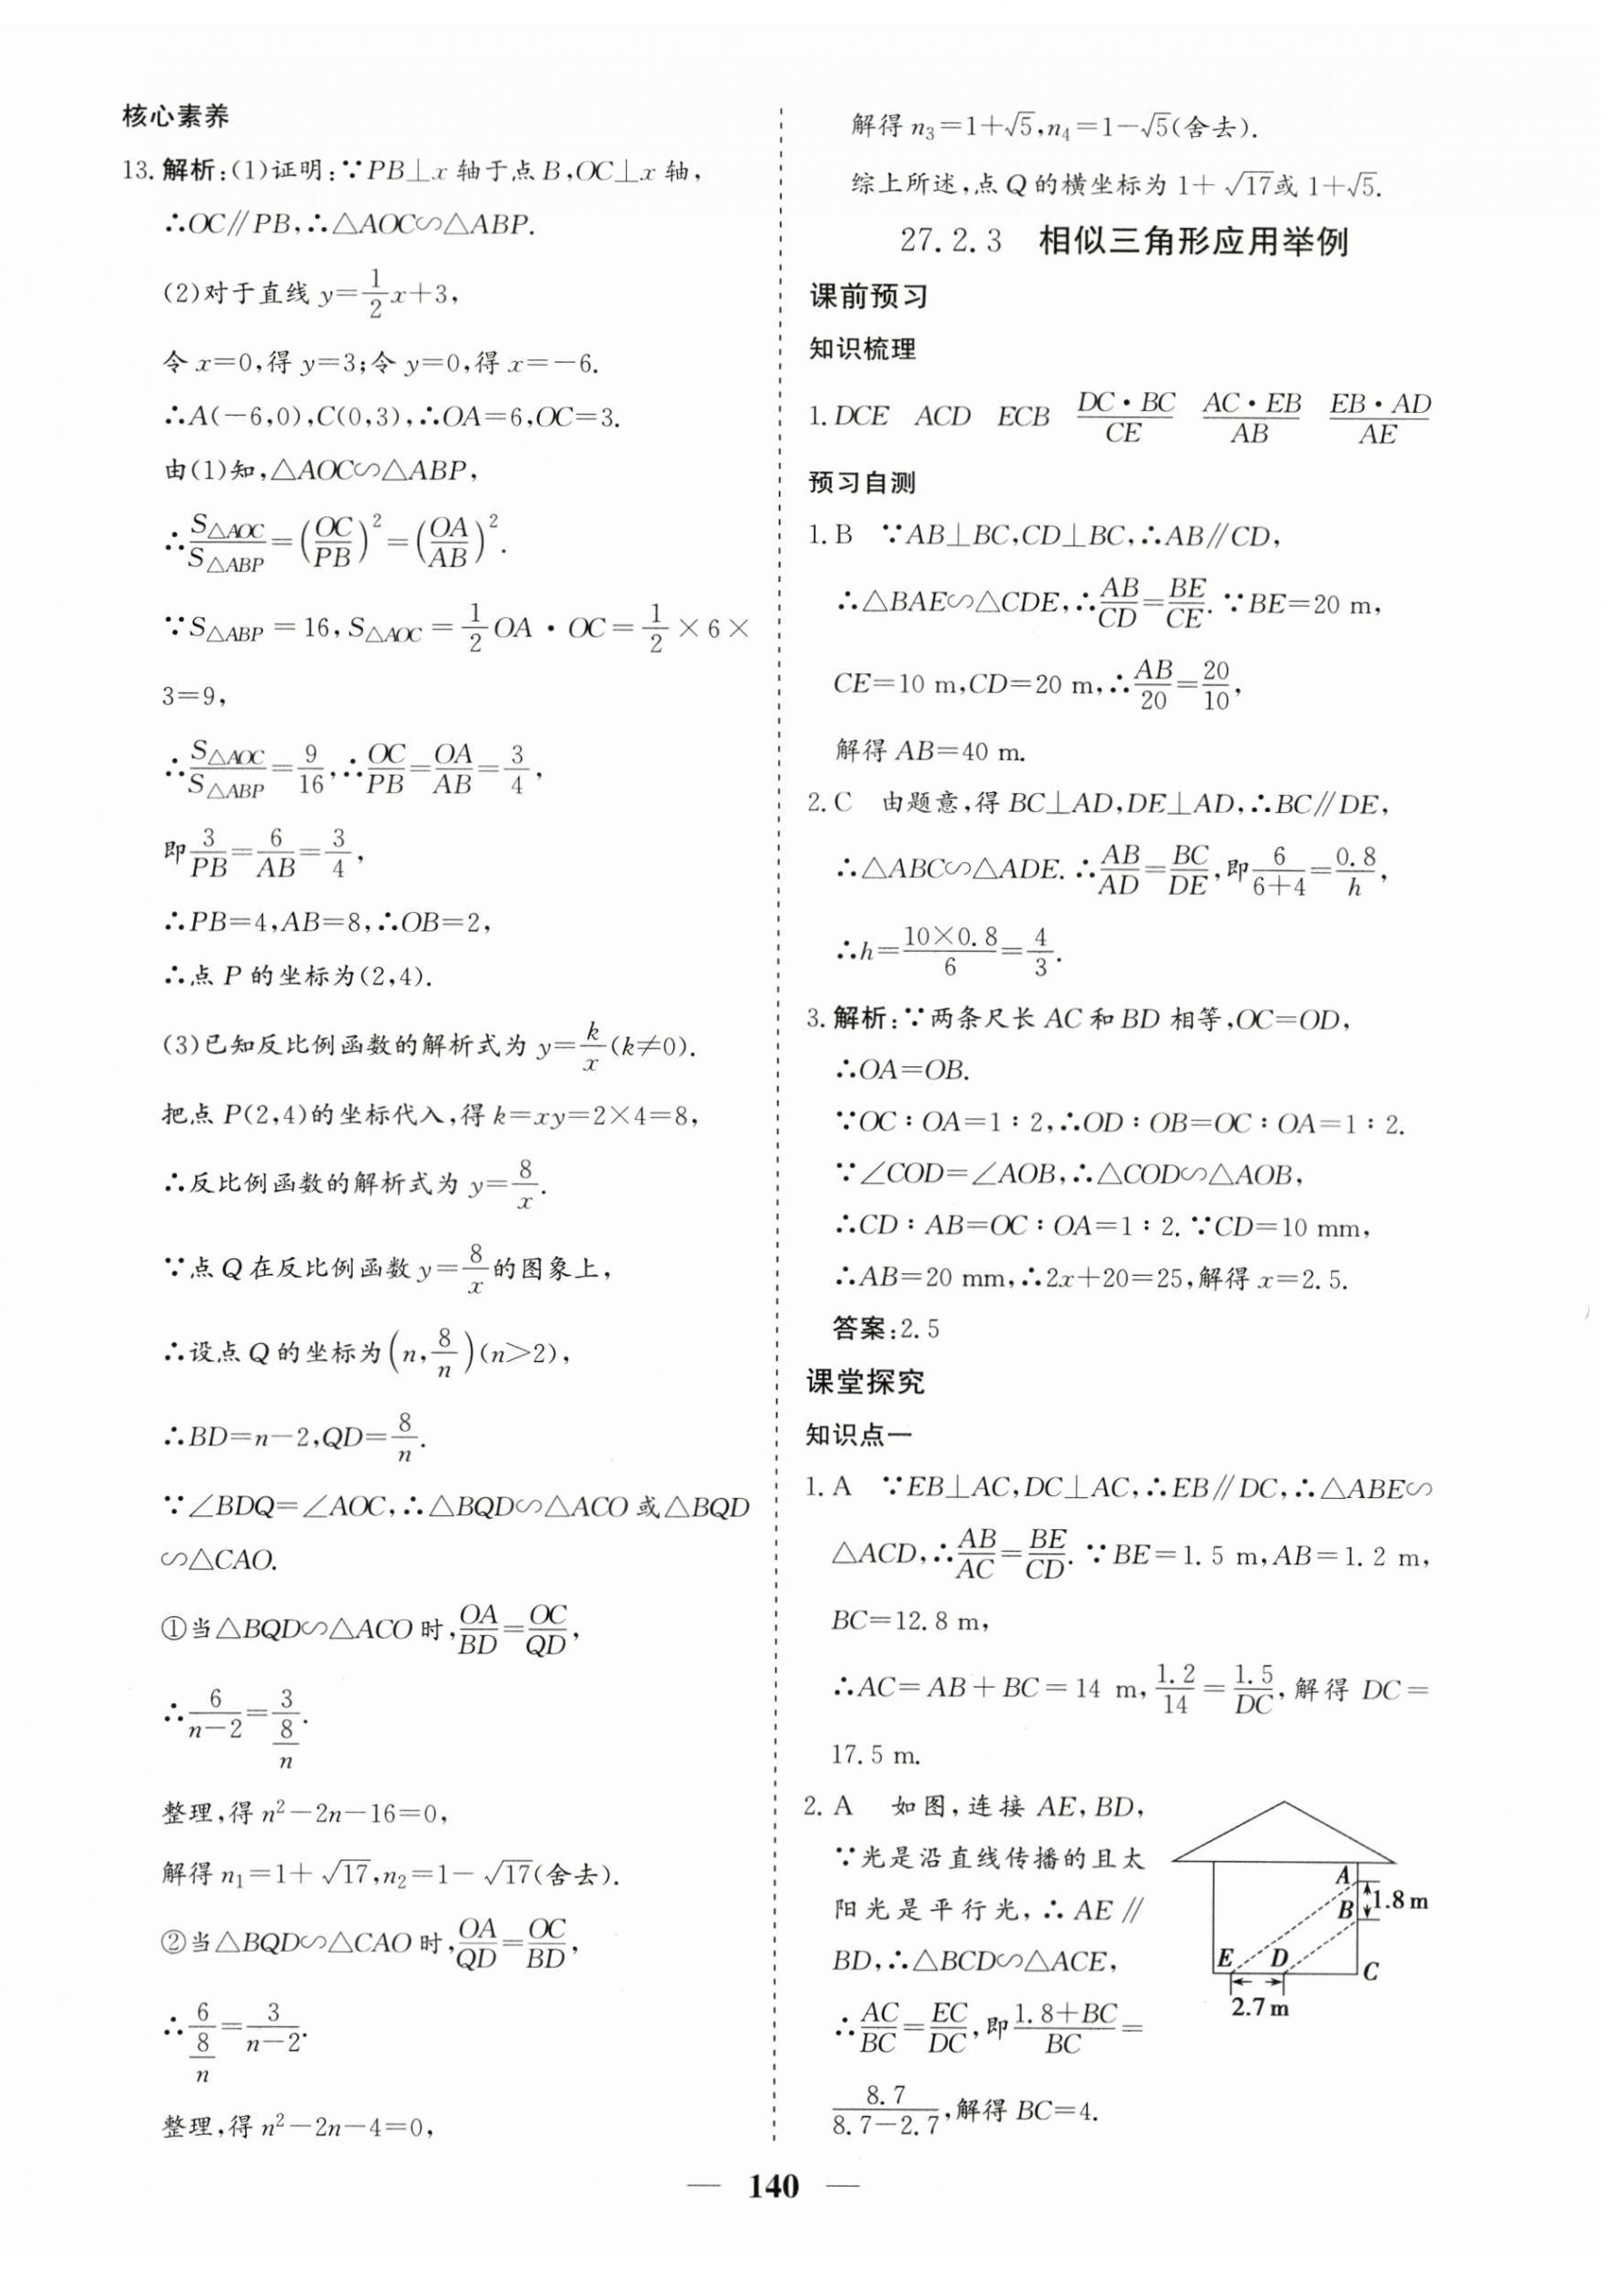 核心素养
13. 解析:(1)证明:∵PB⊥x 轴于点 B,OC⊥x 轴,
∴OC∥PB,∴△AOC∽△ABP.
(2)对于直线 y=\frac{1}{2}x+3,
令 x=0,得 y=3;令 y=0,得 x=-6.
∴A(-6,0),C(0,3),∴OA=6,OC=3.
由(1)知,△AOC∽△ABP,
∴\frac{S_{△AOC}}{S_{△ABP}}=(\frac{OC}{PB})^2=(\frac{OA}{AB})^2.
∵S_{△ABP}=16,S_{△AOC}=\frac{1}{2}OA·OC=\frac{1}{2}×6×
3=9,
∴\frac{S_{△AOC}}{S_{△ABP}}=\frac{9}{16},∴\frac{OC}{PB}=\frac{OA}{AB}=\frac{3}{4},
即\frac{3}{PB}=\frac{6}{AB}=\frac{3}{4},
∴PB=4,AB=8,∴OB=2,
∴点 P 的坐标为(2,4).
(3)已知反比例函数的解析式为 y=\frac{k}{x}(k≠0).
把点 P(2,4)的坐标代入,得 k=xy=2×4=8,
∴反比例函数的解析式为 y=\frac{8}{x}.
∵点 Q 在反比例函数 y=\frac{8}{x}的图象上,
∴设点 Q 的坐标为(n,\frac{8}{n})(n>2),
∴BD=n-2,QD=\frac{8}{n}.
∵∠BDQ=∠AOC,∴△BQD∽△ACO 或△BQD
∽△CAO.
①当△BQD∽△ACO 时,\frac{OA}{BD}=\frac{OC}{QD},
∴\frac{6}{n-2}=\frac{3}{\frac{8}{n}}.
整理,得 n²-2n-16=0,
解得 n₁=1+√17,n₂=1-√17(舍去).
②当△BQD∽△CAO 时,\frac{OA}{QD}=\frac{OC}{BD},
∴\frac{6}{\frac{8}{n}}=\frac{3}{n-2}.
整理,得 n²-2n-4=0,
解得 n₃=1+√5,n₄=1-√5(舍去).
综上所述,点 Q 的横坐标为 1+√17或 1+√5.
27.2.3 相似三角形应用举例
课前预习
知识梳理
1. DCE ACD ECB \frac{DC·BC}{CE} \frac{AC·EB}{AB} \frac{EB·AD}{AE}
预习自测
1. B ∵AB⊥BC,CD⊥BC,∴AB∥CD,
∴△BAE∽△CDE,∴\frac{AB}{CD}=\frac{BE}{CE}.∵BE=20 m,
CE=10 m,CD=20 m,∴\frac{AB}{20}=\frac{20}{10},
解得 AB=40 m.
2. C 由题意,得 BC⊥AD,DE⊥AD,∴BC∥DE,
∴△ABC∽△ADE.∴\frac{AB}{AD}=\frac{BC}{DE},即\frac{6}{6+4}=\frac{0.8}{h},
∴h=\frac{10×0.8}{6}=\frac{4}{3}.
3. 解析:∵两条尺长 AC 和 BD 相等,OC=OD,
∴OA=OB.
∵OC∶OA=1∶2,∴OD∶OB=OC∶OA=1∶2.
∵∠COD=∠AOB,∴△COD∽△AOB,
∴CD∶AB=OC∶OA=1∶2.∵CD=10 mm,
∴AB=20 mm,∴2x+20=25,解得 x=2.5.
答案:2.5
课堂探究
知识点一
1. A ∵EB⊥AC,DC⊥AC,∴EB∥DC,∴△ABE∽
△ACD,∴\frac{AB}{AC}=\frac{BE}{CD}.∵BE=1.5 m,AB=1.2 m,
BC=12.8 m,
∴AC=AB+BC=14 m,\frac{1.2}{14}=\frac{1.5}{DC},解得 DC=
17.5 m.
2. A 如图,连接 AE,BD,
∵光是沿直线传播的且太
阳光是平行光,∴AE∥
BD,∴△BCD∽△ACE,
∴\frac{AC}{BC}=\frac{EC}{DC},即\frac{1.8+BC}{BC}=
\frac{8.7}{8.7-2.7},解得 BC=4.
A
1.8 m
B
E D C
2.7 m
— 140 —